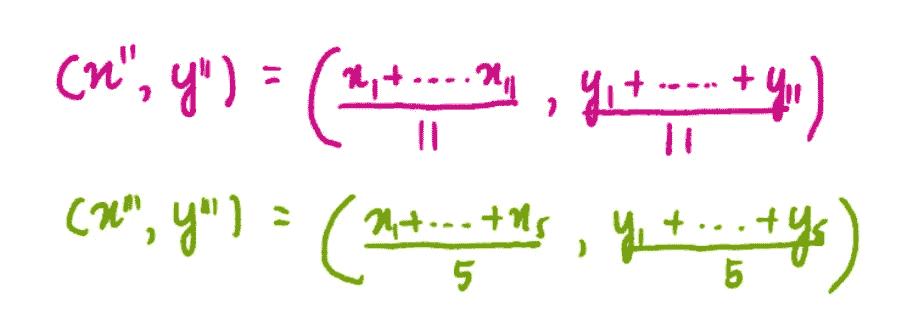 (x'', y'') = ( x₁+.....x₁₁ / 11 , y₁+.....+y₁₁ / 11 )
(x''', y''') = ( x₁+...+x₅ / 5 , y₁+...+y₅ / 5 )